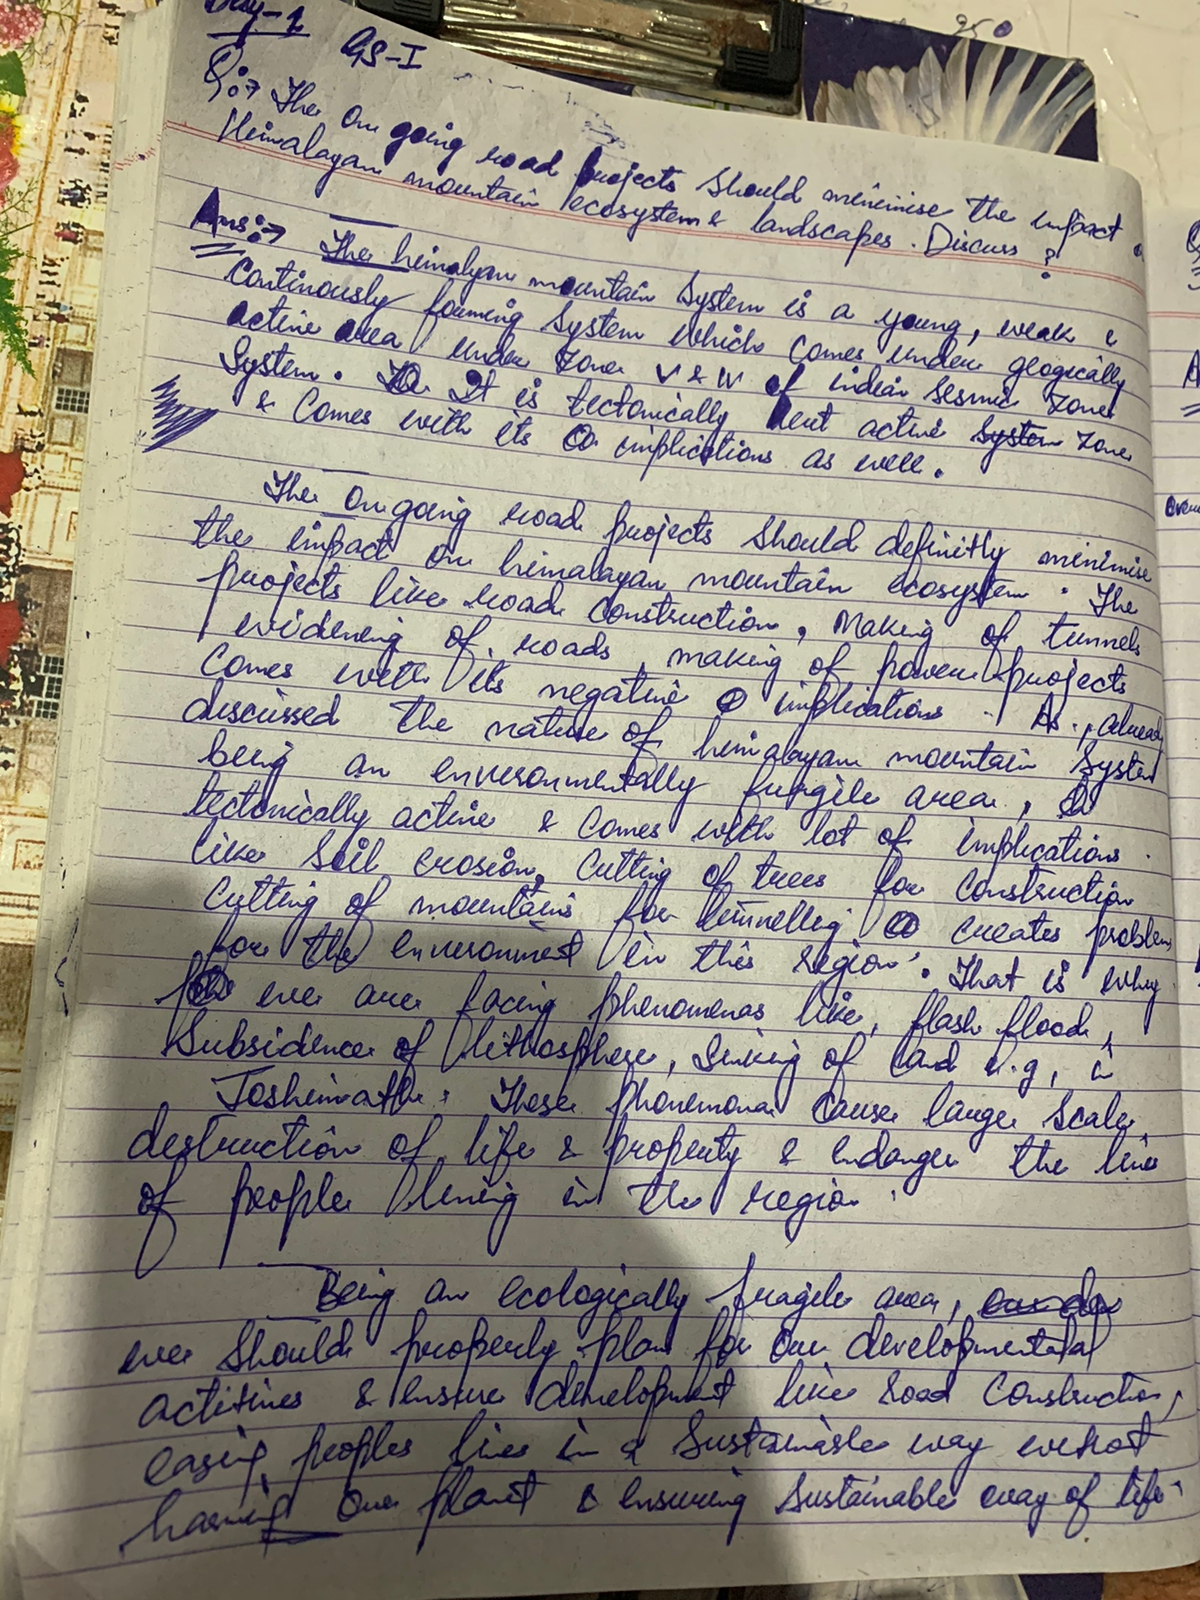 Day-1
GS-I
Q:→ The On going road projects should minimise the impact
Himalayan mountain ecosystem & landscapes. Discuss?
Ans:→ The himalyan mountain system is a young, weak &
Continously forming system which comes under geogically
active area under Zone V & IV of indian Sesmic Zone
System. It is tectonically active system Zone
& Comes with its implications as well.
The on going road projects should definitly minimise
the impact on himalayan mountain ecosystem. The
projects like road construction, Making of tunnels
widening of roads, making of power projects
Comes with its negative implications. As, already
discussed the nature of himalayan mountain System
being an environmentally fragile area,
tectonically active & Comes with lot of implications.
like Soil erosion, Cutting of trees for construction
Cutting of mountains for tunnelling creates problem
for the environment in this region. That is why
we are facing phenomenas like, flash flood,
Subsidence of lithosphere, Sinking of land e.g, in
Joshimath. These phonemona cause large Scale
destruction of life & property & endanger the live
of people living in the region.
Being an ecologically fragile area,
we should properly plan for our developmental
activines & ensure development like road Construction,
easing peoples lives in a Sustainable way without
harming our planet & ensuring Sustainable way of life.